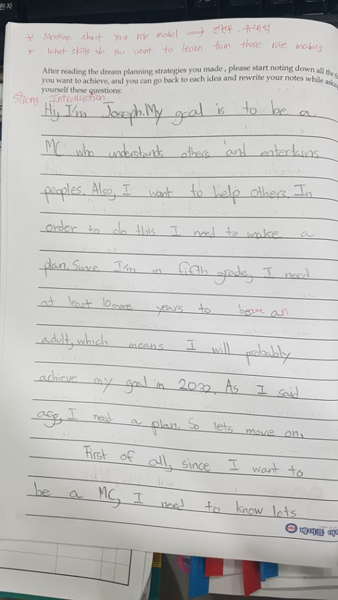 * Mention about your role model →
* What skills do you want to learn from those role models
After reading the dream planning strategies you made, please start noting down all the
you want to achieve, and you can go back to each idea and rewrite your notes while
yourself these questions:
Strong Introduction
Hy I'm Joseph. My goal is to be a
MC who understants others and entertains
peoples. Also, I want to help others. In
order to do this I need to make a
plan. Since I'm in fifth grade, I need
at least 10 more years to become an
adult, which means I will probably
achieve my goal in 2032. As I said
ago, I need a plan. So lets move on.
First of all, since I want to
be a MC, I need to know lots